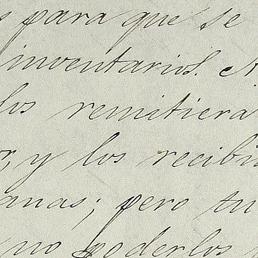 s para que se
inventarios. A
los remitiera
r, y los recibi
anas; pero tu
no poderlos